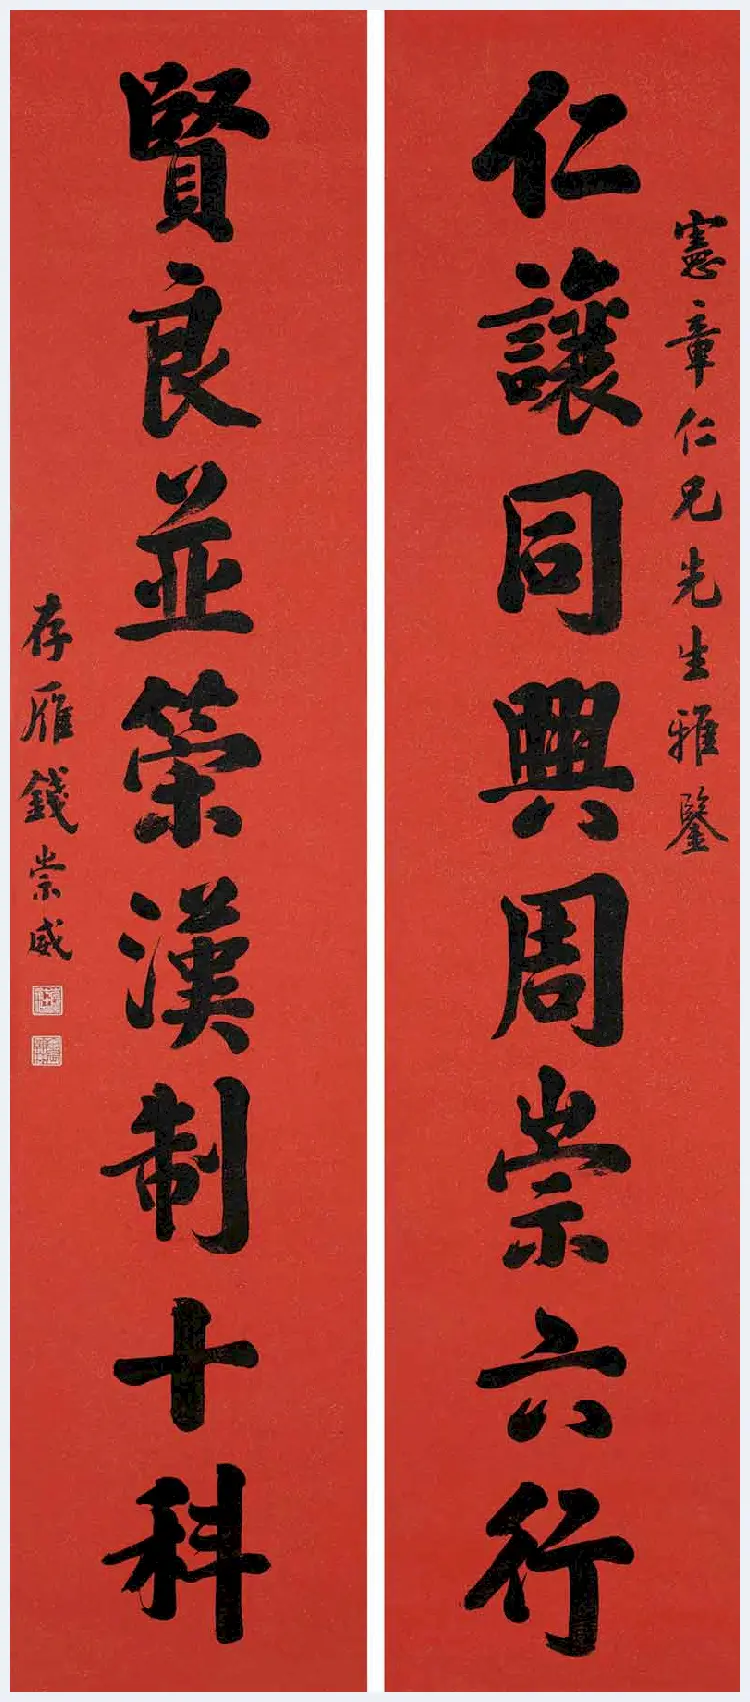 憲章仁兄先生雅鑒
仁讓同興周崇六行
賢良並榮漢制十科
存雁錢崇威